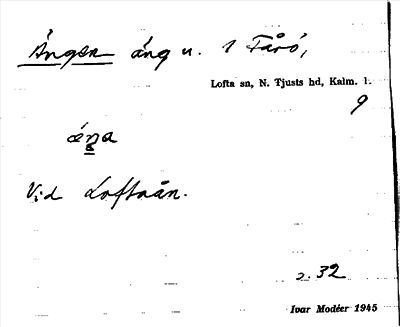 Ängen äng u. 1 Fårö,
Lofta sn, N. Tjusts hd, Kalm. l.
9
Vid Loftaån.
2. 32
Ivar Modéer 1945